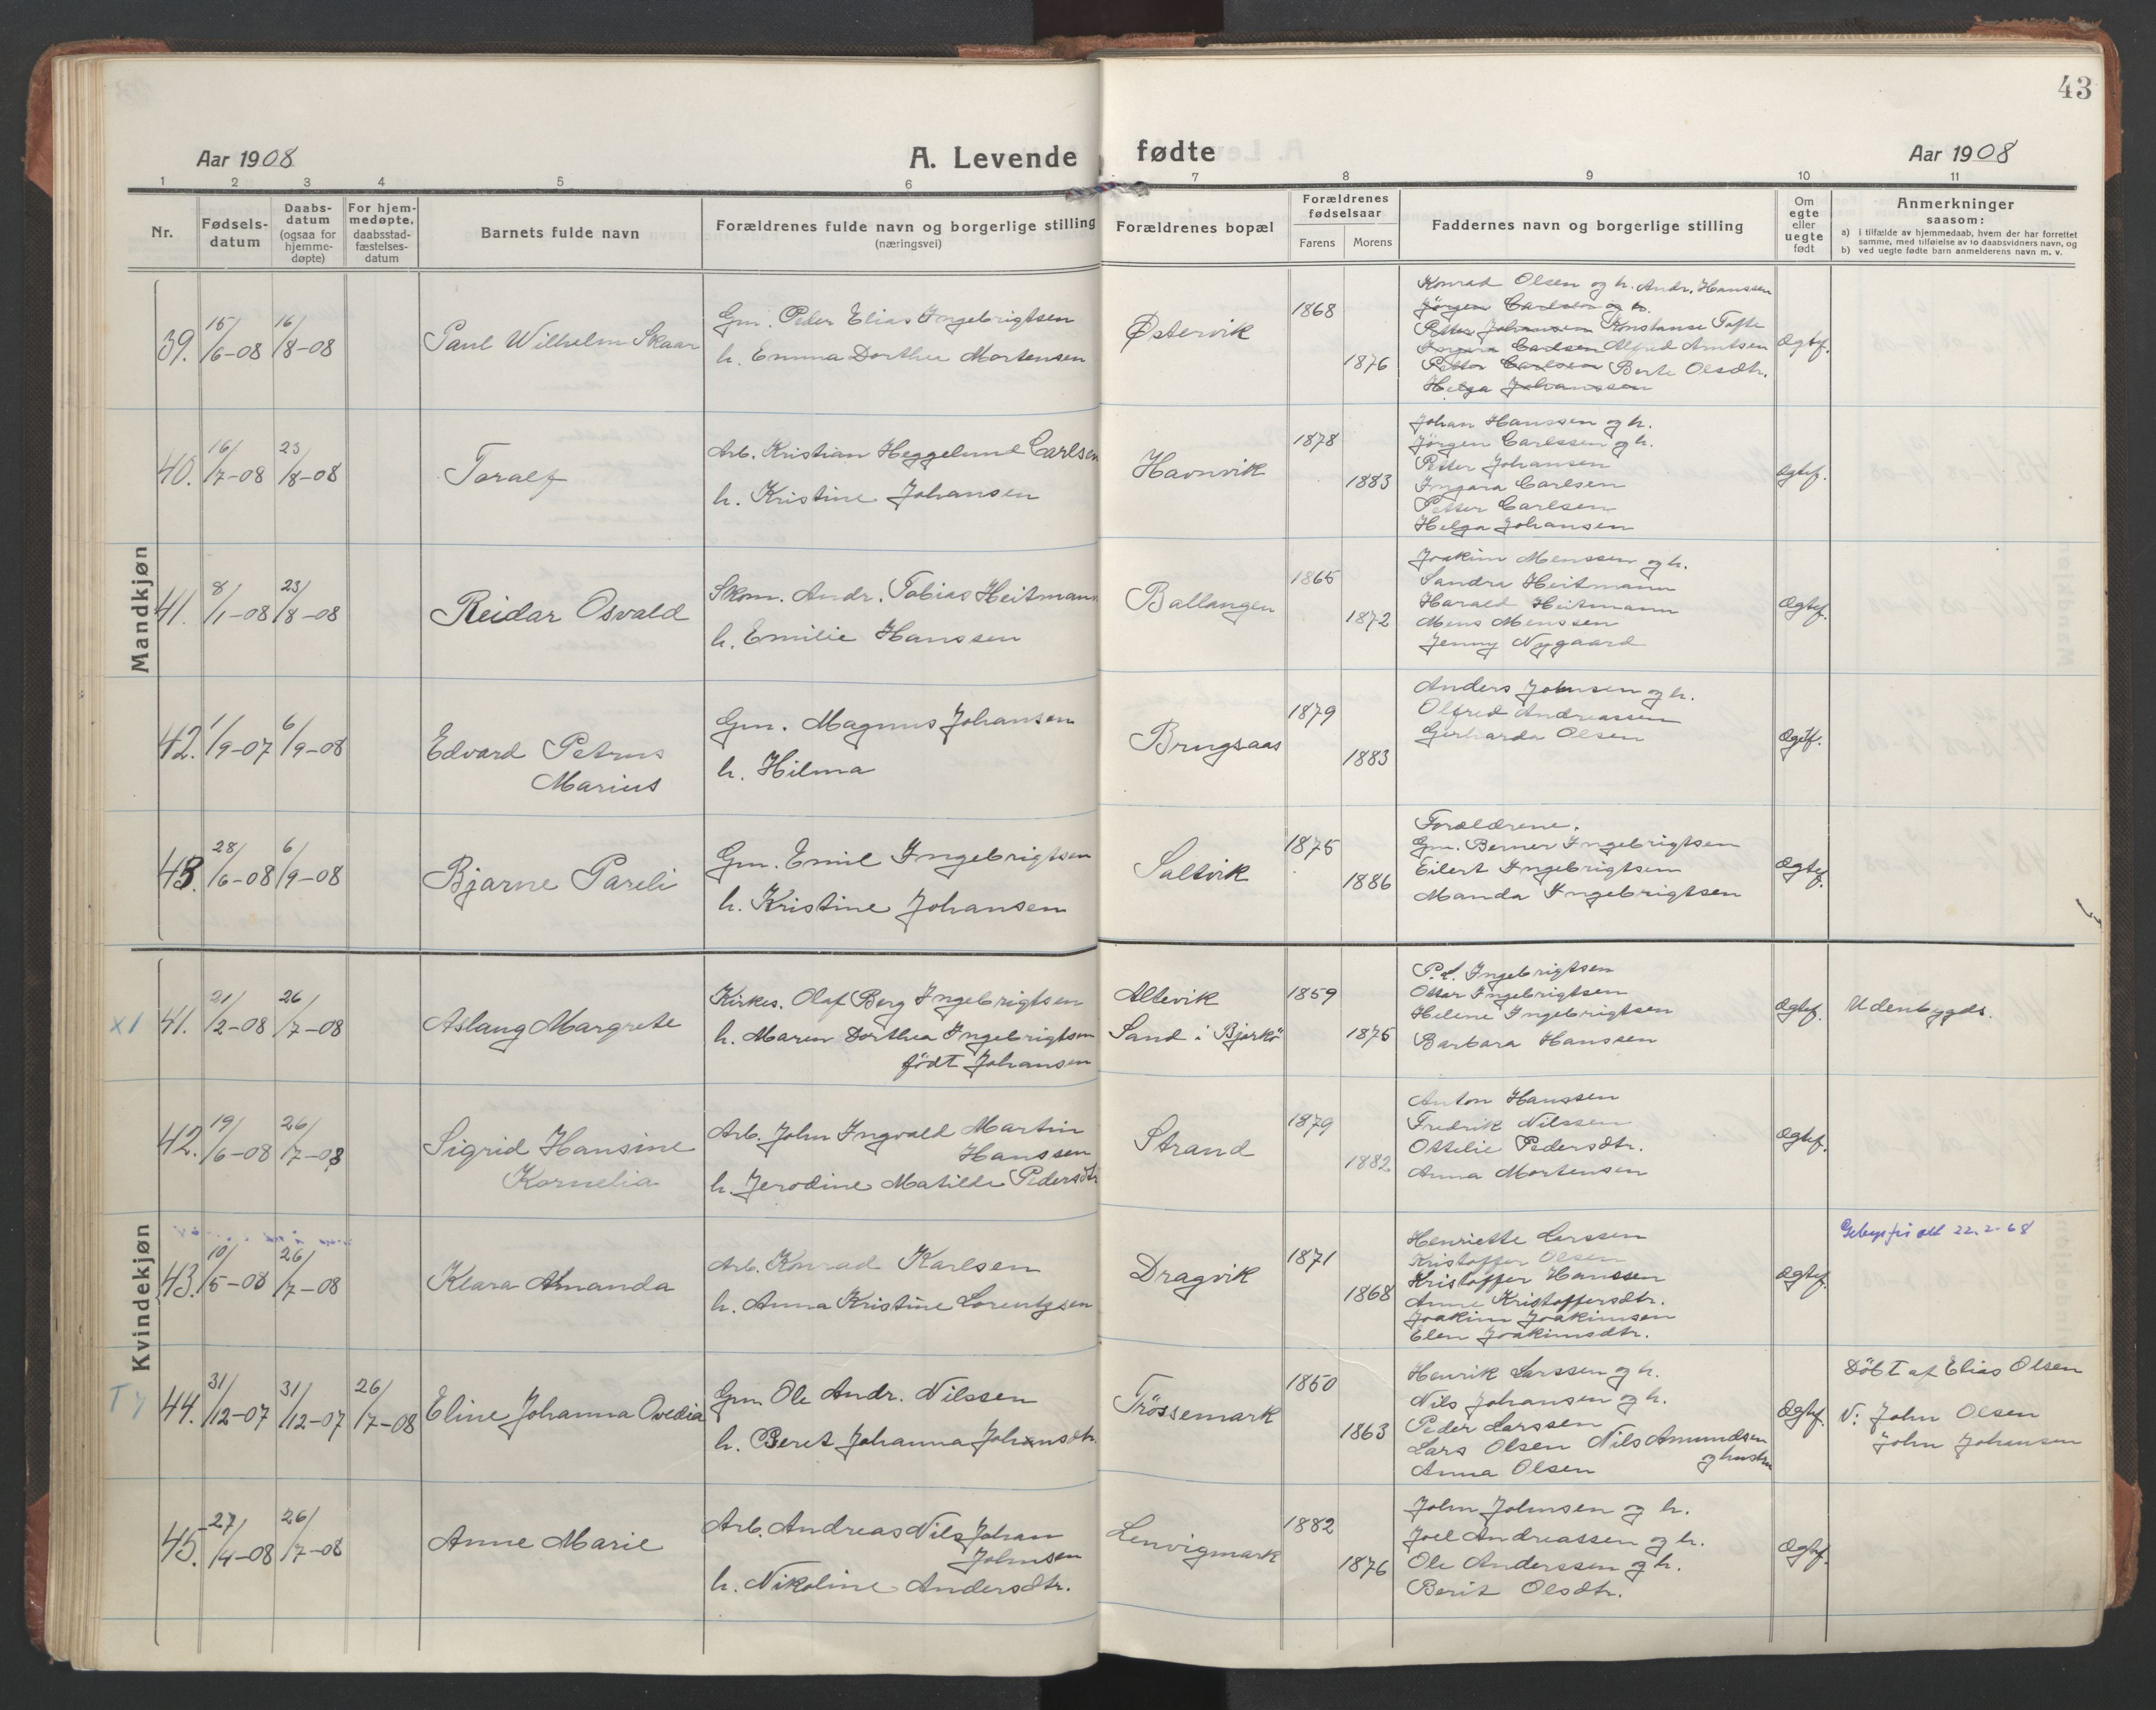 43
Aar 1908 A. Levende fødte Aar 1908
1 2 3 4 5 6 7 8 9 10 11
Nr.
Fødsels-
datum
Daabs-
datum
(ogsaa for
hjemme-
døpte)
For hjem-
medøpte,
daabsstad-
fæstelses-
datum
Barnets fulde navn
Forældrenes fulde navn og borgerlige stilling
(næringsvei)
Forældrenes bopæl
Forældrenes
fødselsaar
Farens Morens
Faddernes navn og borgerlige stilling
Om
egte
eller
uegte
født
Anmerkninger
saasom:
a) i tilfælde av hjemmedaab, hvem der har forrettet
samme, med tilføielse av to daabsvidners navn, og
b) ved uegte fødte barn anmelderens navn m. v.
Mandkjøn
39. 15/6-08 16/8-08
Paul Wilhelm Skaar
Gm. Peder Elias Ingebrigtsen
h. Emma Dorthea Mortensen
Østervik
1868
1876
Konrad Olsen og h. Andr. Hanssen
Jörgen Carlsen og h.
Petter Johansen Konstanse Tofte
Ingara Carlsen Alfred Arntsen
Petter Carlsen Berte Olsdtr.
Helga Johanssen
Ægtef.
40. 16/7-08 23/8-08
Toralf
Arb. Kristian Heggelund Carlsen
h. Kristine Johansen
Havnvik
1878
1883
Johan Hanssen og h.
Jörgen Carlssen og h.
Petter Johansen
Ingara Carlsen
Petter Carlsen
Helga Johansen
Ægtef.
41. 8/1-08 23/8-08
Reidar Osvald
Skom. Andr. Tobias Heitmann
h. Emilie Hanssen
Ballangen
1865
1872
Joakim Menssen og h.
Sandra Heitmann
Harald Heitmann
Mens Menssen
Jenny Nygaard
Ægtef.
42. 1/9-07 6/9-08
Edvard Petrus
Marius
Gm. Magnus Johansen
h. Hilma
Brugsaas
1879
1883
Anders Johnsen og h.
Olfred Andreassen
Gerharda Olsen
Ægtf.
43. 28/6-08 6/9-08
Bjarne Pareli
Gm. Emil Ingebrigtsen
h. Kristine Johansen
Saltvik
1875
1886
Forældrene.
Gm. Berner Ingebrigtsen
Eilert Ingebrigtsen
Manda Ingebrigtsen
Ægtef.
Kvindekjøn
X1 41. 21/2-08 26/7-08
Aslaug Margrete
Kirkes. Olaf Berg Ingebrigtsen
h. Maren Dorthea Ingebrigtsen
født Johansen
Altevik
Sand i Bjarkö
1859
1875
P.L. Ingebrigtsen
Ottar Ingebrigtsen
Helene Ingebrigtsen
Barbara Hanssen
Ægtef.
Udenbygds.
42. 19/6-08 26/7-08
Sigrid Hansine
Kornelia
Arb. John Ingvald Martin
Hanssen
h. Jerodine Matilde Pedersdtr
Strand
1879
1882
Anton Hanssen
Fredrik Nilssen
Ottilie Pedersdtr.
Anna Mortensen
Ægtef.
43. 10/5-08 26/7-08
Klara Amanda
Arb. Konrad Karlsen
h. Anna Kristine Lorentzsen
Dragvik
1871
1868
Henriette Larssen
Kristoffer Olsen
Kristoffer Hanssen
Anne Kristoffersdtr.
Joakim Joakimsen
Elen Joakimsdtr.
Ægtef.
Gebyrfri att 22.2-68
T7 44. 31/12-07 31/12-07 26/7-08
Eline Johanna Ovedia
Gm. Ole Andr. Nilssen
h. Beret Johanna Johansdtr.
Trössemark
1850
1863
Henrik Larssen og h.
Nils Johansen og h.
Peder Larssen
Lars Olsen Nils Amundsen
Anna Olsen og hustru
Ægtef.
Döbt af Elias Olsen
V: John Olsen
John Johansen
45. 27/4-08 26/7-08
Anne Marie
Arb. Andreas Nils Johan
Johnsen
h. Nikoline Andersdtr.
Lenvigmark
1882
1876
John Johnsen og h.
Joel Andreassen og h.
Ole Anderssen og h.
Berit Olsdtr.
Ægtf.